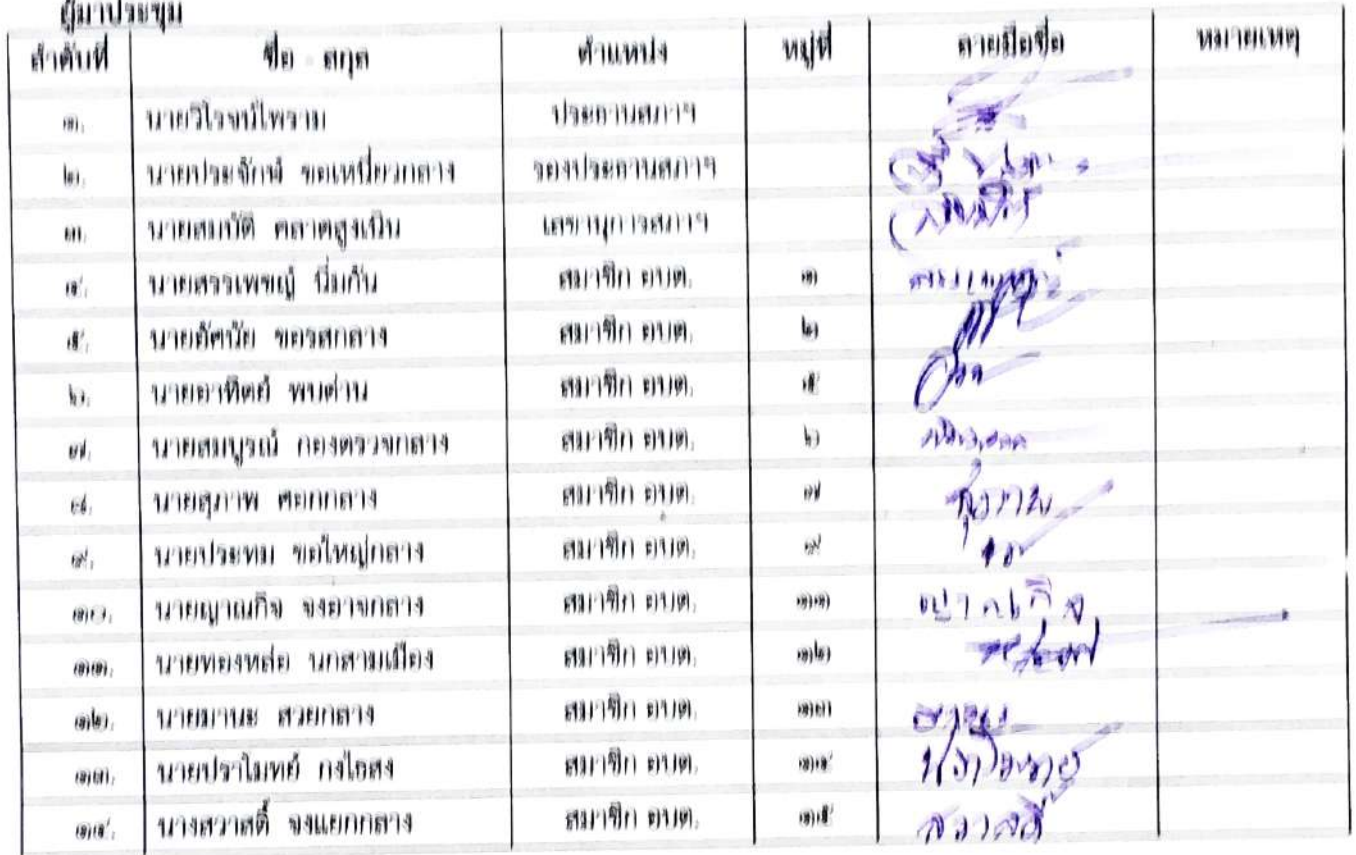 ผู้มาประชุม
ลำดับที่ ชื่อ - สกุล ตำแหน่ง หมู่ที่ ลายมือชื่อ หมายเหตุ
๑. นายวิโรจน์ไพราม ประธานสภาฯ
๒. นายประจักษ์ ขอเหนี่ยวกลาง รองประธานสภาฯ
๓. นายสมบัติ ตลาดสูงเนิน เลขานุการสภาฯ
๔. นายสรรเพชญ์ นิ่มกัน สมาชิก อบต. ๑ สรรเพชญ์
๕. นายอัศนัย ขอรสกลาง สมาชิก อบต. ๒
๖. นายอาทิตย์ พบด่าน สมาชิก อบต. ๕
๗. นายสมบูรณ์ กองตรวจกลาง สมาชิก อบต. ๖
๘. นายสุภาพ ศอกกลาง สมาชิก อบต. ๗ สุภาพ
๙. นายประทม ขอใหญ่กลาง สมาชิก อบต. ๙
๑๐. นายญาณกิจ จงอาจกลาง สมาชิก อบต. ๑๑ ญาณกิจ
๑๑. นายทองหล่อ นกสามเมือง สมาชิก อบต. ๑๒
๑๒. นายมานะ สวยกลาง สมาชิก อบต. ๑๓
๑๓. นายปราโมทย์ กงไธสง สมาชิก อบต. ๑๔ ปราโมทย์
๑๔. นางสวาสดิ์ จงแยกกลาง สมาชิก อบต. ๑๕ สวาสดิ์